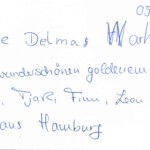 09
e Delmas Wark
wunderschönen goldenem
, Tjark, Finn, Leon
aus Hamburg